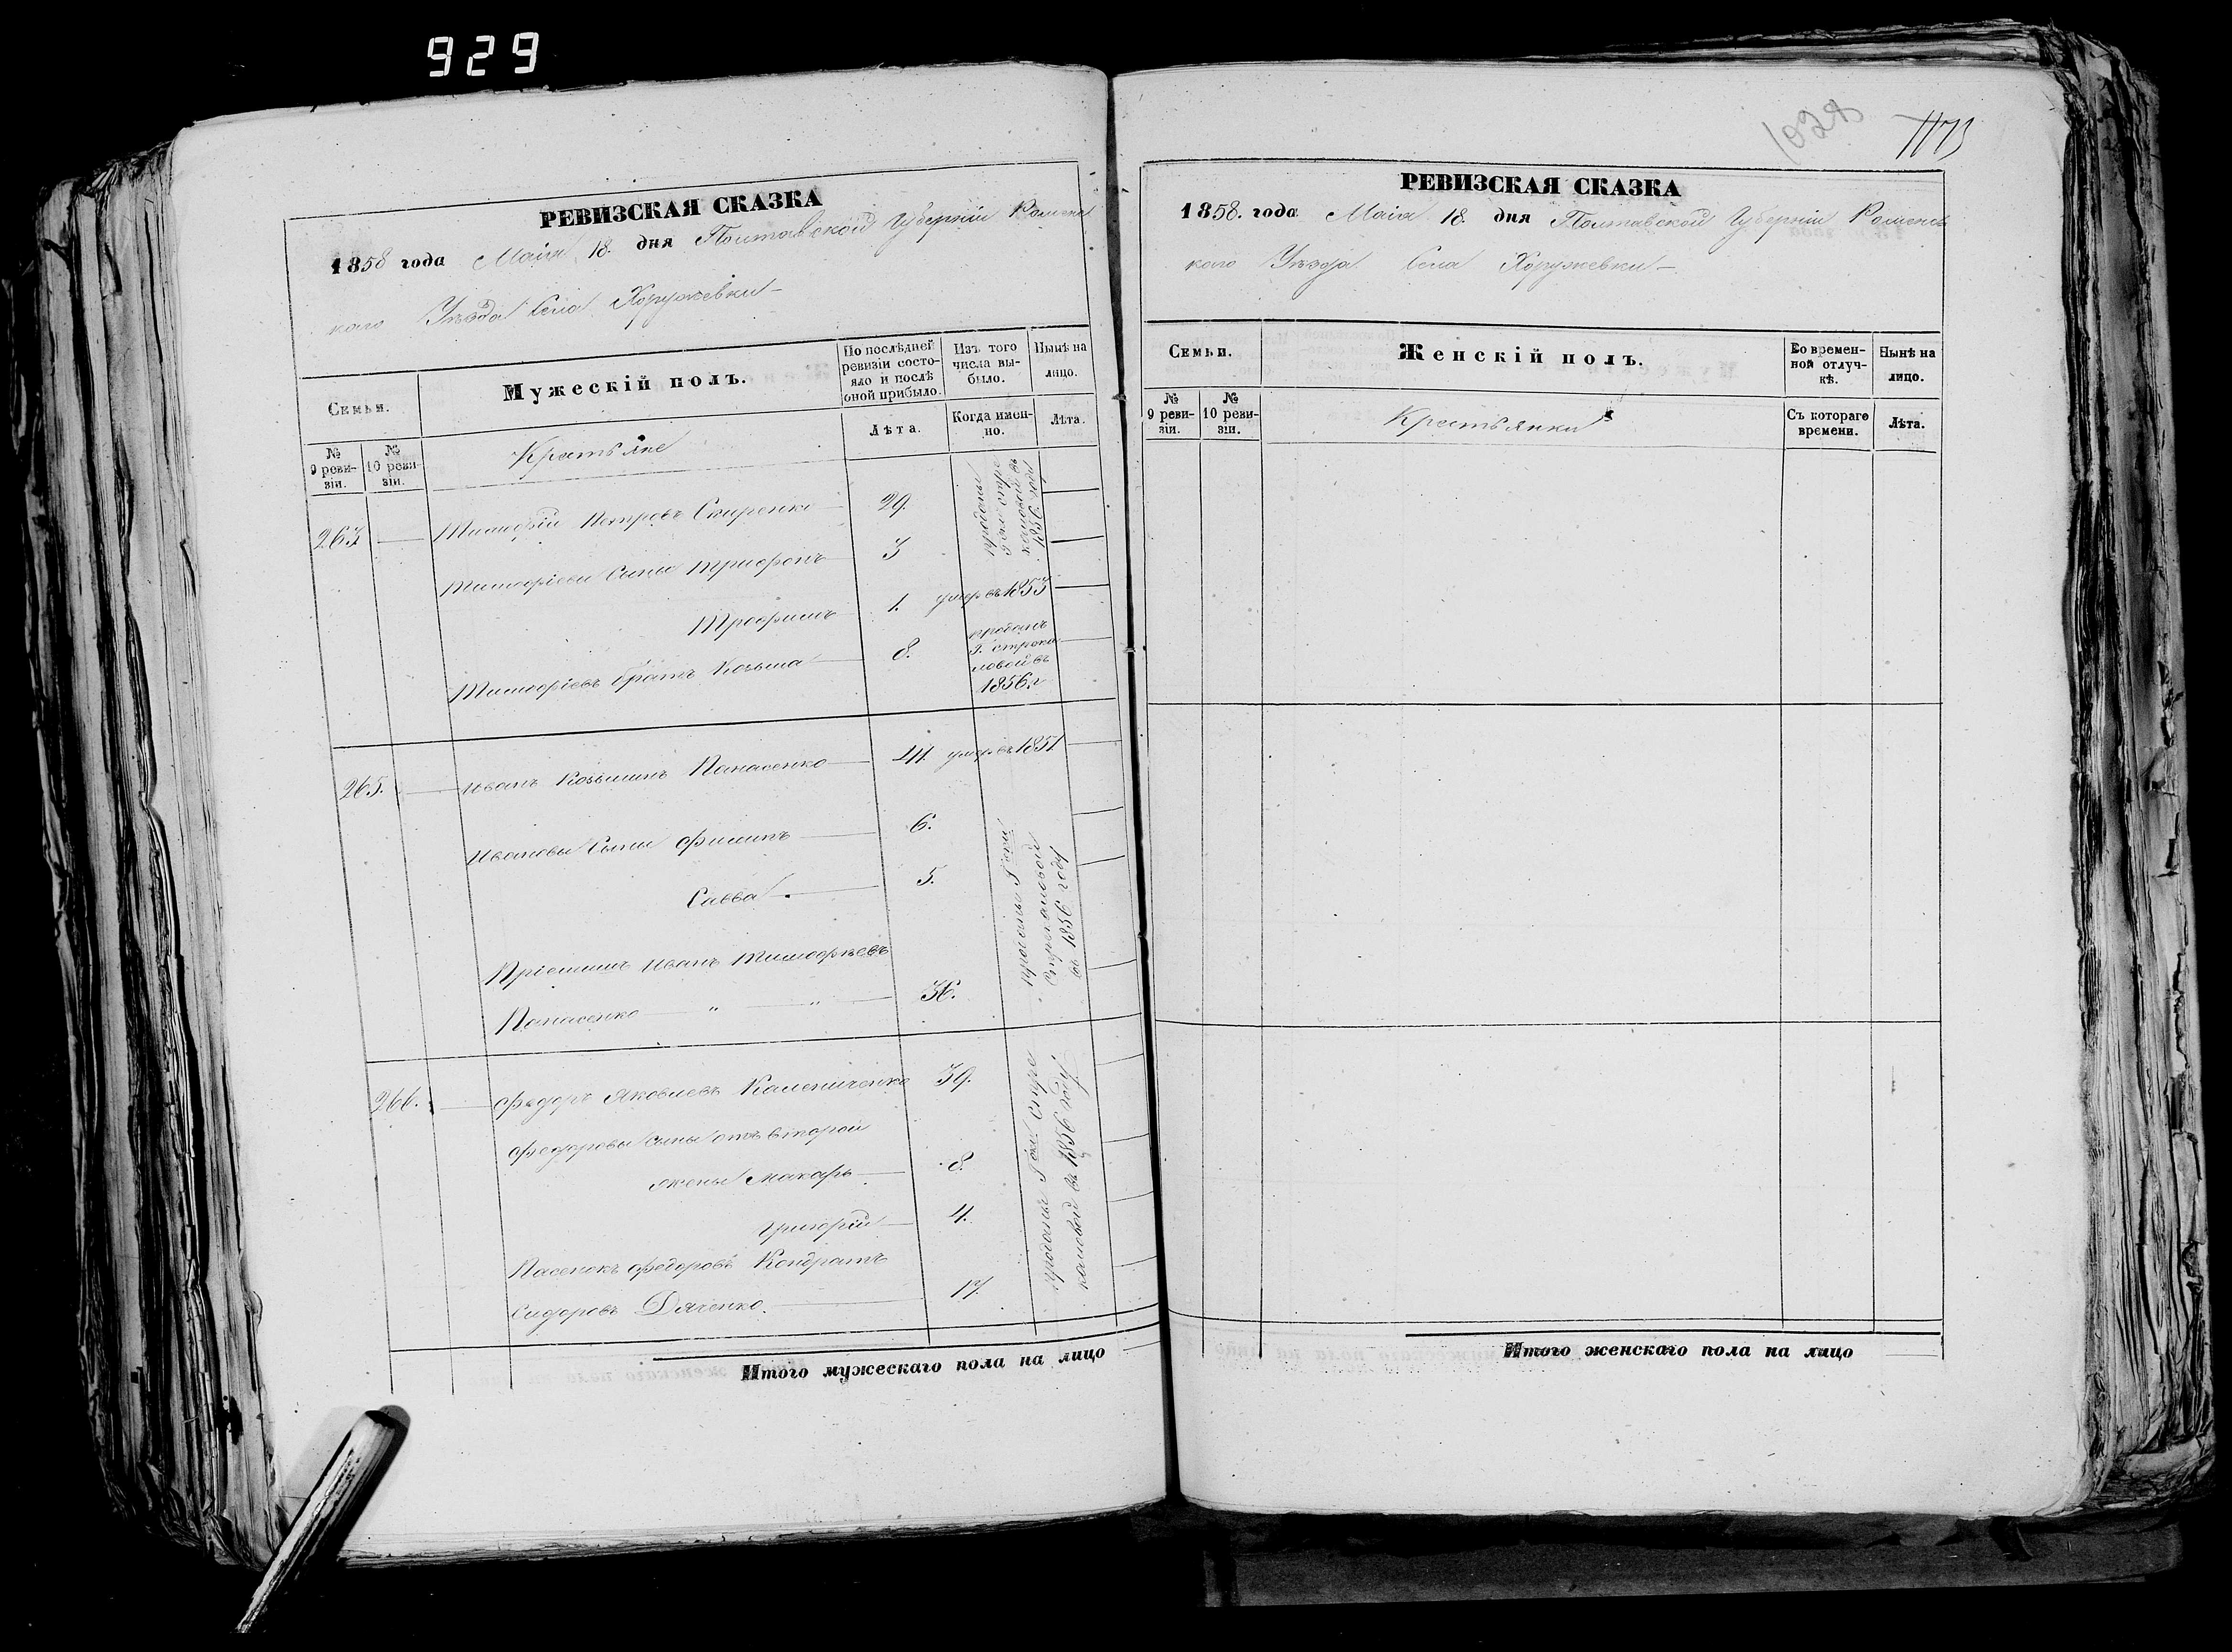 929
РЕВИЗСКАЯ СКАЗКА
1858 года Маія 18. дня Полтавской Губерніи Роменс
каго Уѣзда Села Хоружевки
Семьи.
Мужескій полъ.
По послѣдней ревизіи состояло и послѣ оной прибыло.
Изъ того числа выбыло.
Нынѣ на лицо.
№ 9 ревизіи.
№ 10 ревизіи.
Крестьяне
Лѣта.
Когда именно.
Лѣта.
263 Тимофій Петровъ 29.
Тимофіевы Сыны Трифонъ 3
Трофимъ 1. умеръ въ 1853
Тимофіевъ братъ Козьма 8. проданъ Г. строкаловой въ 1856 г
265. Иванъ Козьминъ Панасенко 44. умеръ въ 1851
Ивановы Сыны Филипъ 6.
Савва 5.
Пріемышъ Иванъ Тимофѣевъ
Панасенко 36.
въ 1856 году
266. Федоръ Яковлевъ 39.
Федоровы сыны отъ второй
жены Макаръ 8.
Григорій 4.
Пасенокъ Федоровъ Кондратъ
Сидоровъ Дяченко. 17.
въ 1856 году
Итого мужескаго пола на лицо
1028
1173
РЕВИЗСКАЯ СКАЗКА
1858. года Маія 18. дня Полтавской Губерніи Роменс
каго Уѣзда Села Хоружевки
Семьи.
Женскій полъ.
Во временной отлучкѣ.
Нынѣ на лицо.
№ 9 ревизіи.
№ 10 ревизіи.
Крестьянки
Съ котораго времени.
Лѣта.
Итого женскаго пола на лицо